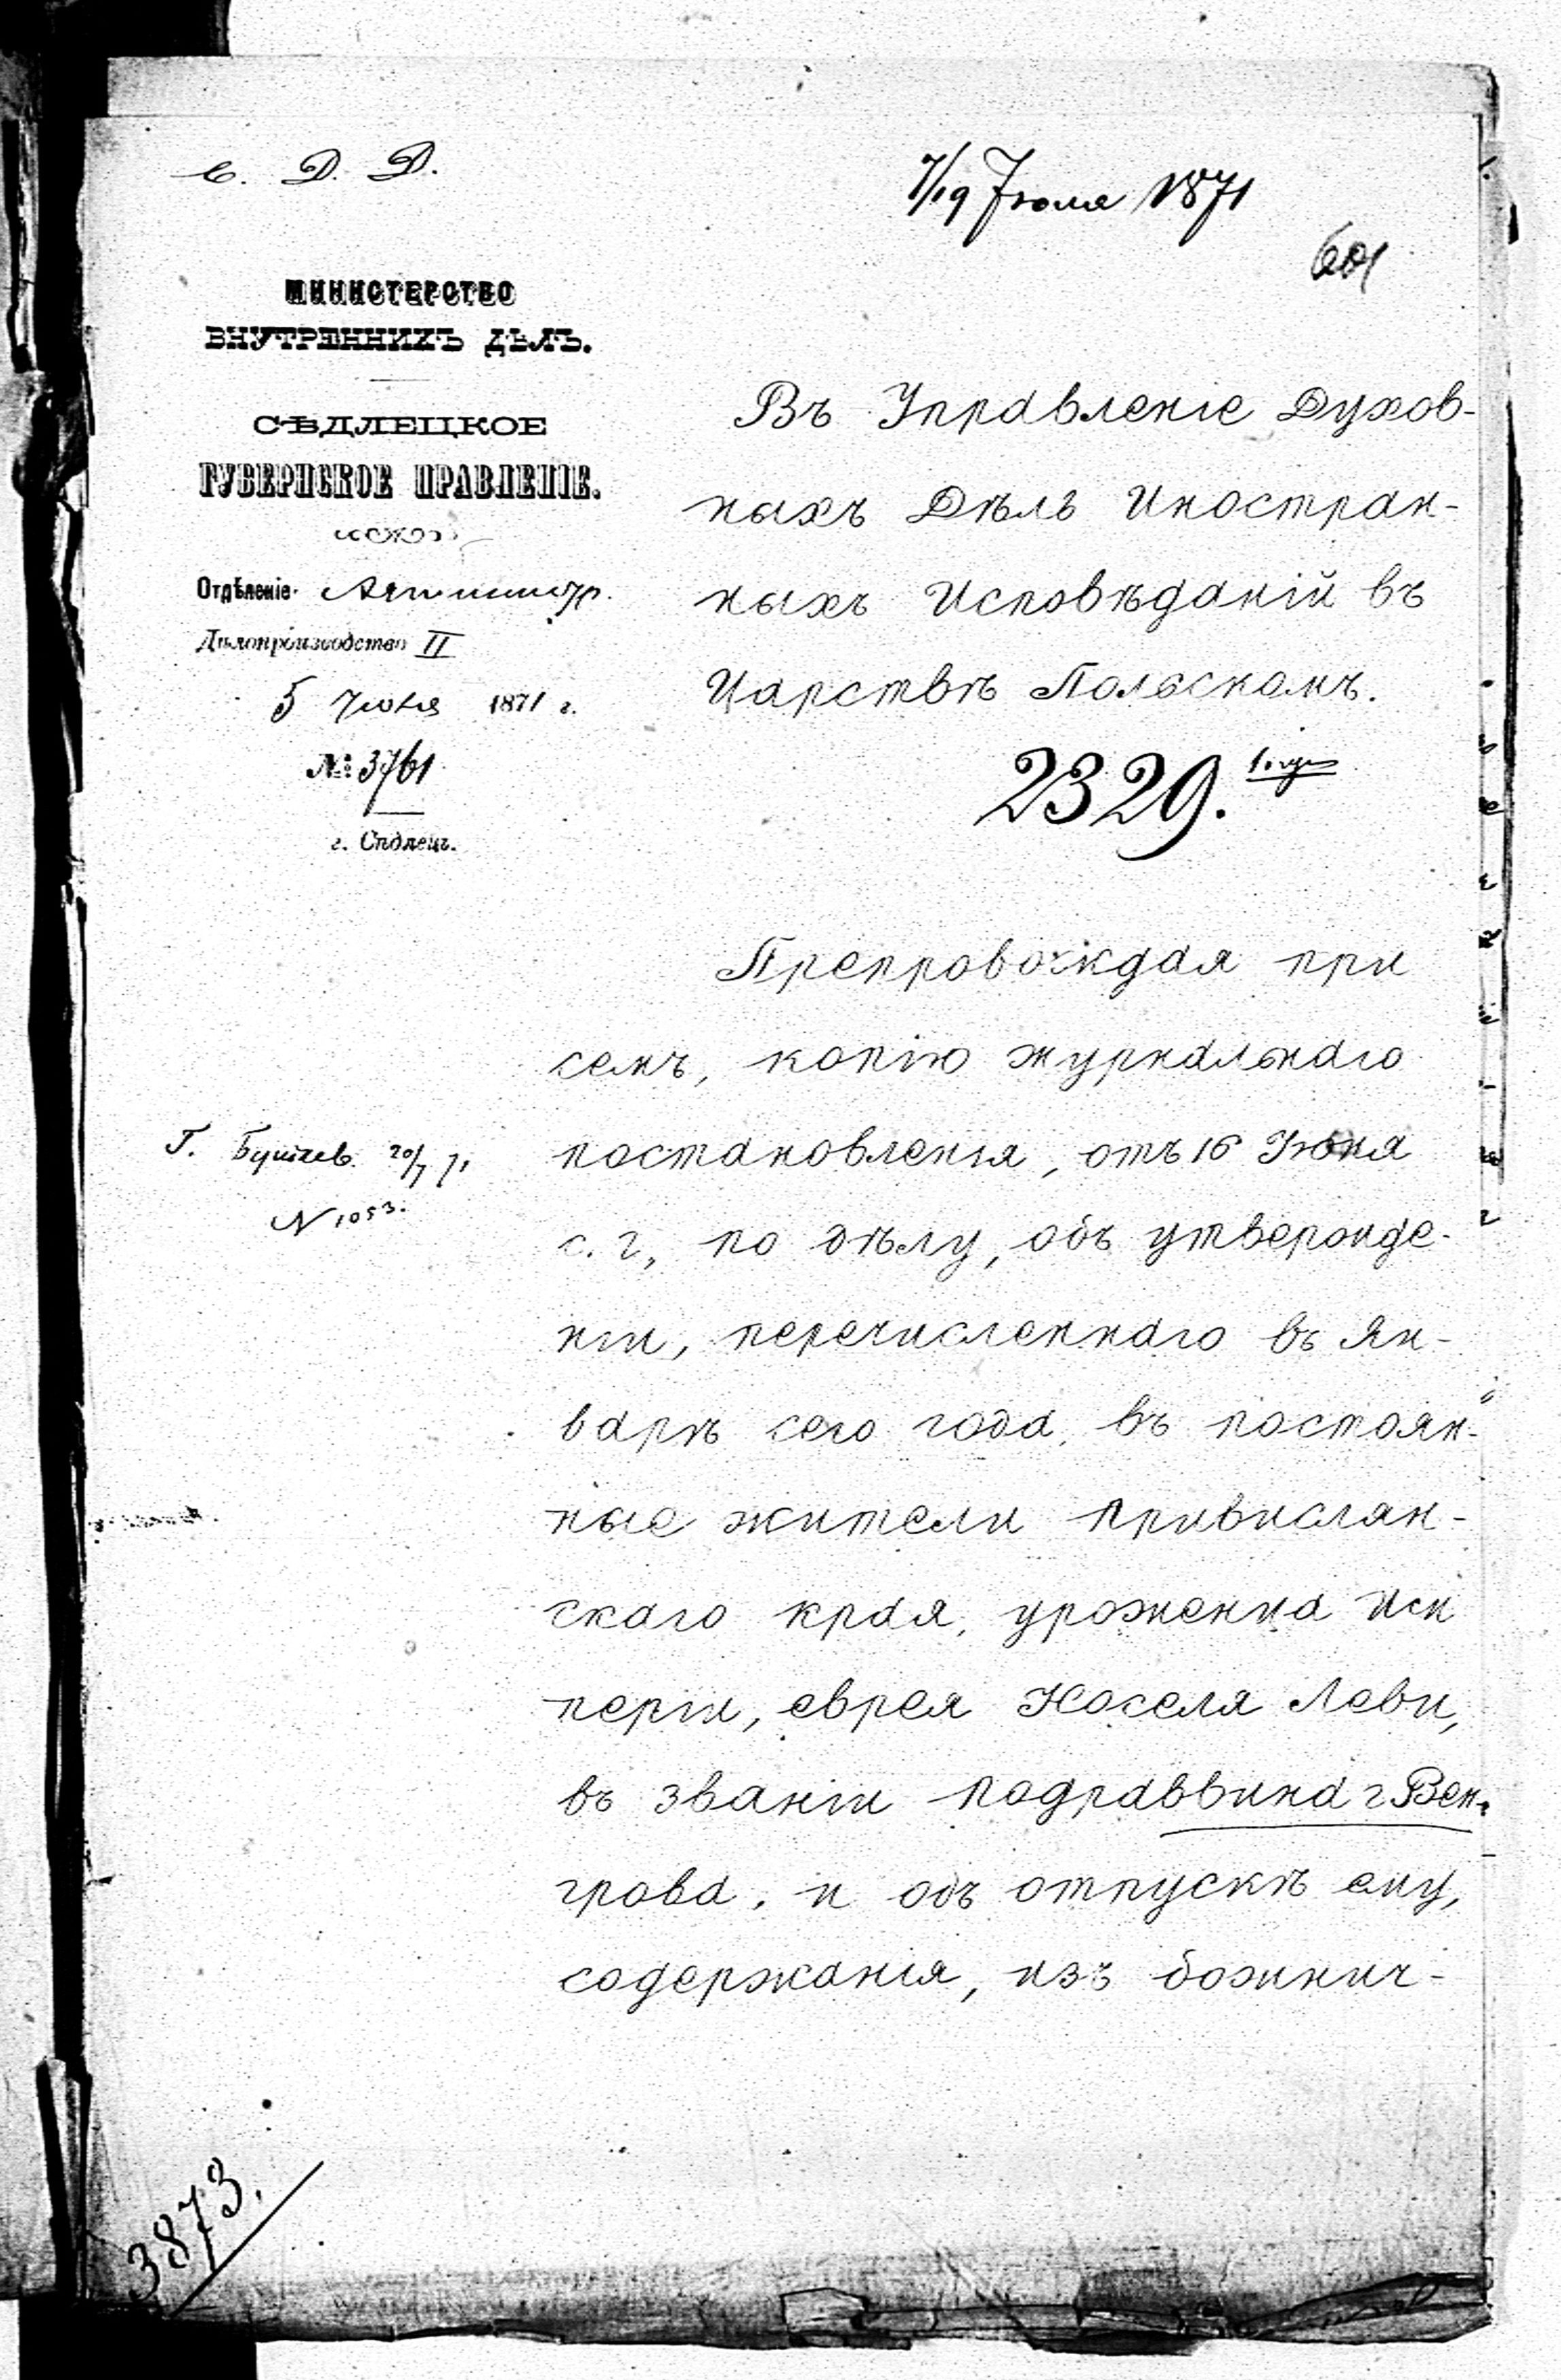 С. Д. Д.
7/19 Іюля 1871
601
МИНИСТЕРСТВО
ВНУТРЕННИХЪ ДѢЛЪ.
СѢДЛЕЦКОЕ
ГУБЕРНСКОЕ ПРАВЛЕНІЕ.
Отдѣленіе Администр.
Дѣлопроизводство II
5 Іюля 1871 г.
№ 3761
г. Сѣдлецъ.
Въ Управленіе Духов-
ныхъ Дѣлъ Иностран-
ныхъ Исповѣданій въ
Царствѣ Польскомъ.
2329.
Препровождая при
семъ, копію журнальнаго
постановленія, отъ 16 Іюня
с. г., по дѣлу, объ утвержде-
ніи, перечисленнаго въ Ян-
варѣ сего года, въ постоян-
ные жители Привислян-
скаго края, уроженца Им
періи, еврея Носеля Леви,
въ званіи подраввина г. Вен-
грова, и объ отпускѣ ему,
содержанія, изъ божнич-
Г. 20/7 71
N 1053.
3873.